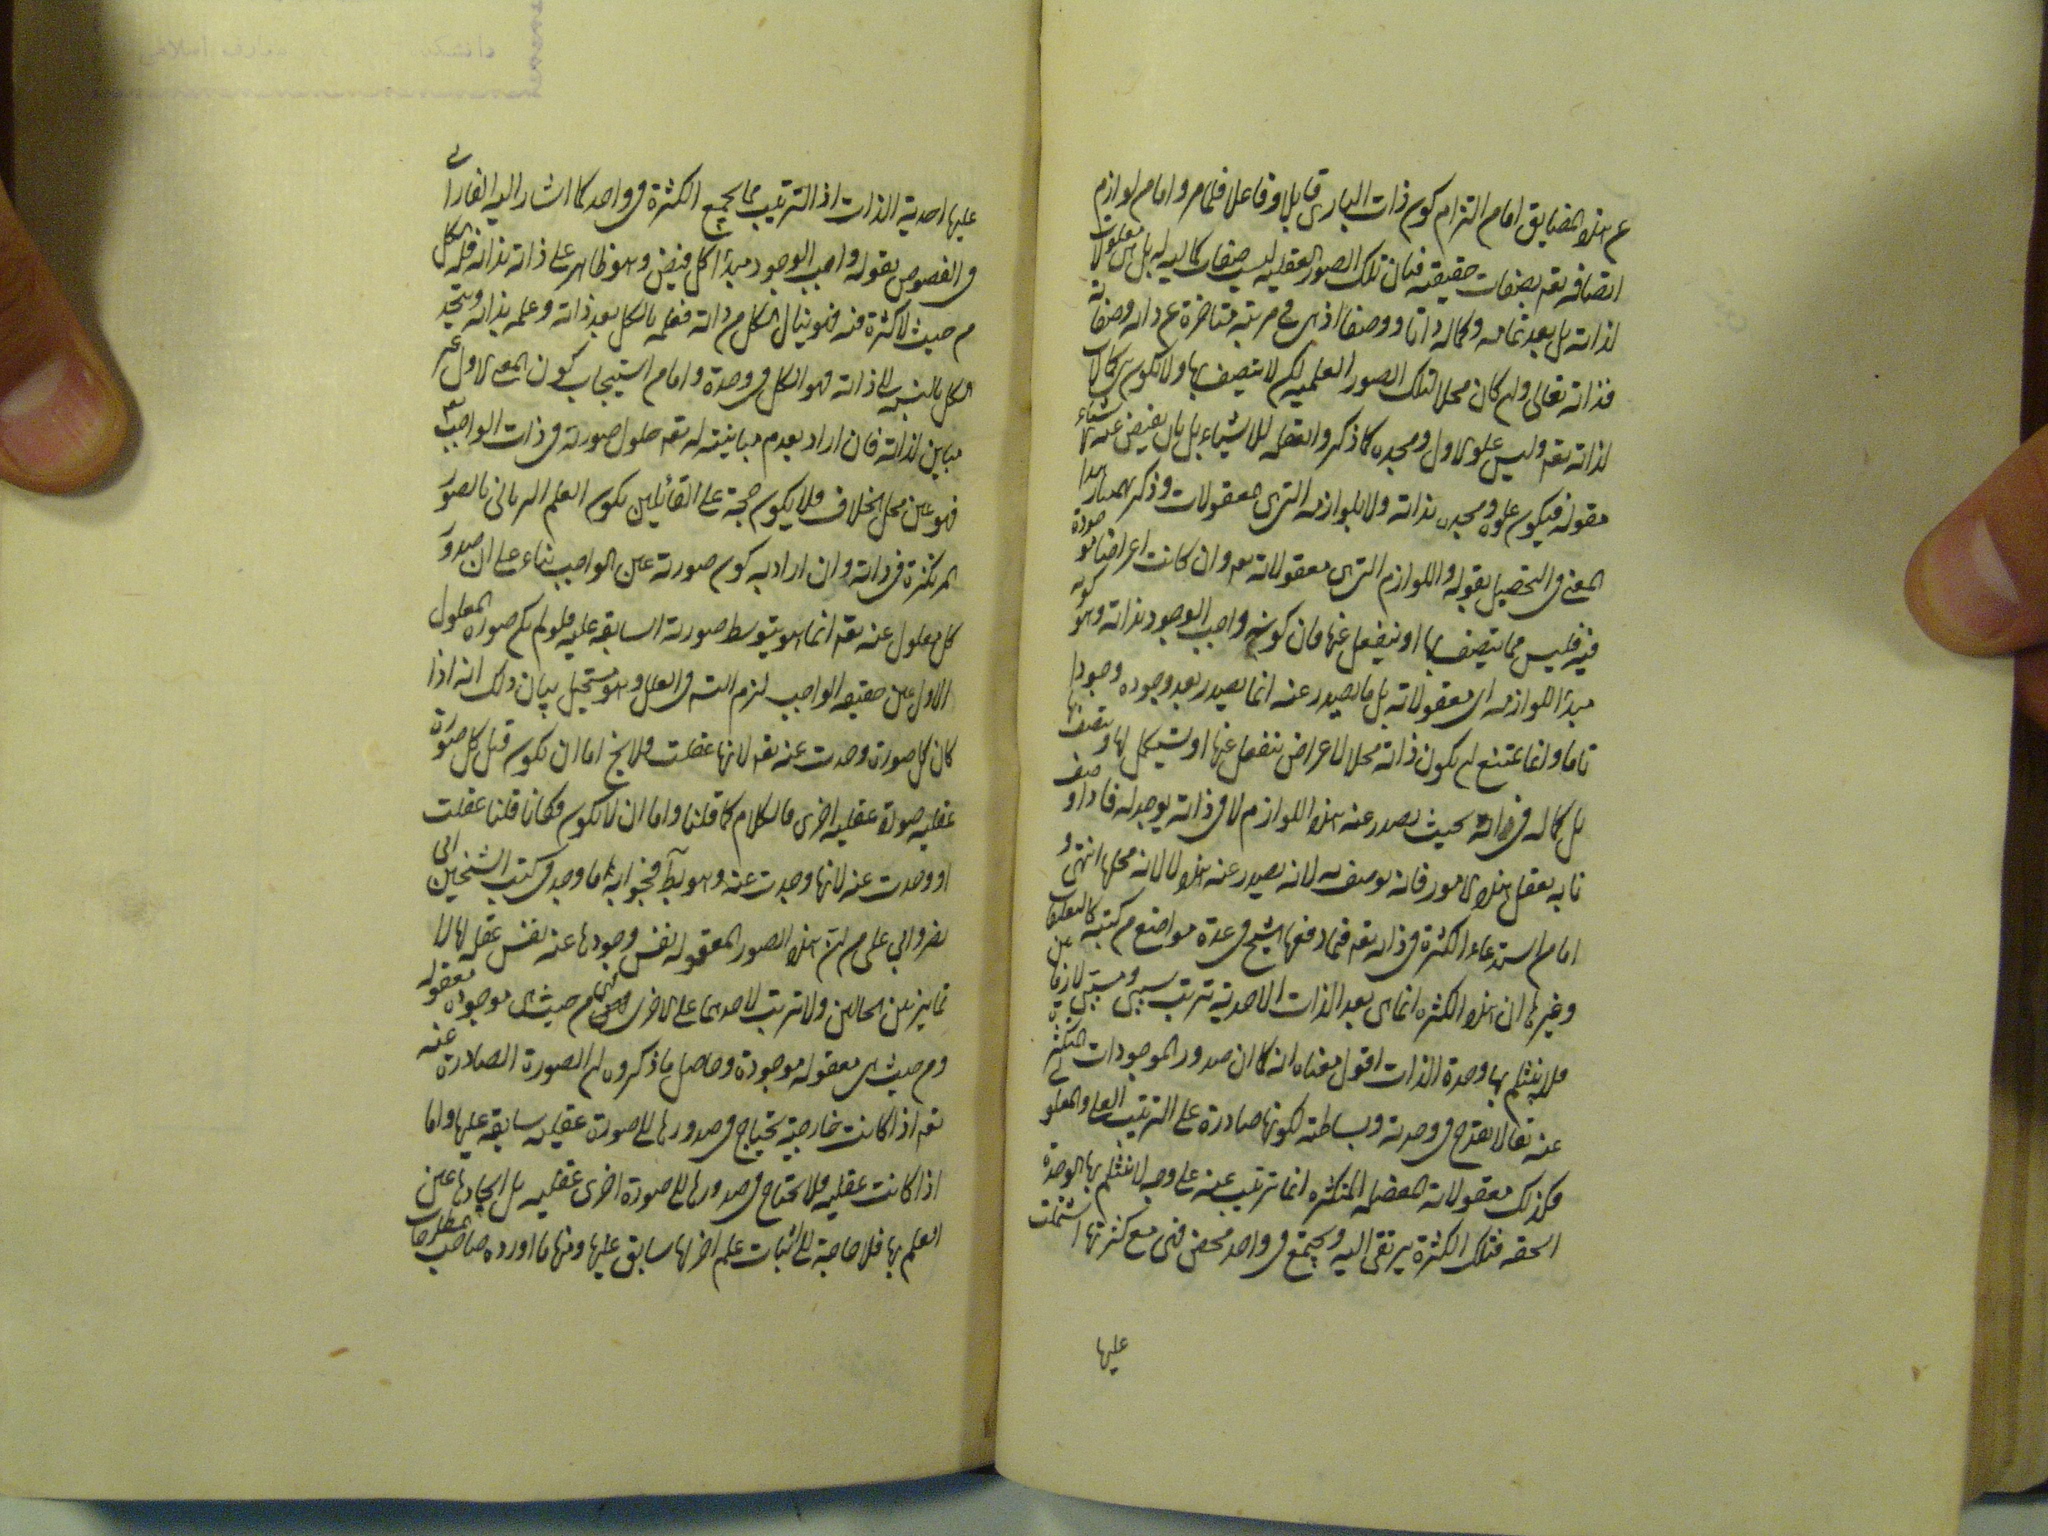 عن هذه المضايق اما من التزام كون ذات الباري قابلا وفاعلا فلما مر واما من لوازم
اتصافه تعه بصفات حقيقية فبان تلك الصور العقليه ليست صفات كماليه له بل هى معلولات
لذاته بل بعد تمامه وكماله ذاتا ووصفا اذ هى فى مرتبة متاخرة عن ذاته وصفاته
فذاته تعالى وان كان محلا لتلك الصور العلميه لكن لا يتصف بها ولا تكون هى كمالات
لذاته تعه وليس علو الاول ومجده كما ذكر وا تعقله للاشياء بل بان يفيض عنه الاشياء
معقوله فيكون علوه ومجده بذاته ولا بلوازمه التى هى معقولات وذكر بهمنيار هذا
المعنى فى التحصيل بقوله واللوازم التى هى معقولاته تعه وان كانت اعراضا موجودة
فيه فليس مما يتصف بها او ينفعل عنها فان كونه واجب الوجود بذاته وهو كونه
مبدأ للوازمه اى معقولاته بل ما يصدر عنه انما يصدر بعد وجوده وجودا
تاما وانما يمتنع ان يكون ذاته محلا لاعراض ينفعل عنها او يستكمل بها او يتصف بها
بل كماله فى انه بحيث يصدر عنه هذه اللوازم لا فى ذاته يوجد له فاذا وصف
بانه يعقل هذه الامور فانه يوصف به لانه يصدر عنه هذه لا لانه محلها انتهى و
اما من استدعاء الكثرة فى ذاته تعه فبما دفعها الشيخ فى عدة مواضع من كتبه كالتعليقات
وغيرها ان هذه الكثره انما هى بعد الذات الاحدية بترتيب سببى ومسببى لا زمانى
فلا ينثلم بها وحدة الذات اقول معناه انه كما ان صدور الموجودات المتكثره
عنه تعالى لا يقدح فى وحدته وبساطته لكونها صادرة على الترتيب العلى والمعلولى
فكذلك معقولاته المفصله المتكثره انما ترتب عنه على وجه لا ينثلم بها الوحدة
الحقه فتلك الكثرة يرتقى اليه ويجتمع فى واحد محض فهى مع كثرتها اشتملت
عليها
عليها احدية الذات اذ الترتيب مما يجمع الكثرة فى واحد كما اشار اليه الفارابى
فى الفصوص بقوله واجب الوجود مبدأ كل فيض وهو ظاهر على ذاته بذاته فله الكل
من حيث لا كثرة فيه فهو ينال الكل من ذاته فعلمه بالكل بعد ذاته وعلمه بذاته ويتحد
الكل بالنسبه الى ذاته فهو الكل فى وحدة واما من استيجاب كون المعلول الاول غير
مباين لذاته فان اراد بعدم مباينته له تعه حلول صورته فى ذات الواجب تعه
فهو عين محل الخلاف فلا يكون حجة على القائلين بكون العلم الربانى بالصور
المرتكزة فى ذاته وان اراد به كون صورته عين الواجب بناء على ان صدور
كل معلول عنه تعه انما هو بتوسط صورته السابقه عليه فلو لم يكن صورة المعلول
الاول عين حقيقه الواجب لزم التس فى العلل وهو مستحيل بيان ذلك انه اذا
كان كل صورة وجدت عنه تعه لانها عقلت فلا يخ اما ان تكون قبل كل صورة
عقليه صورة عقليه اخرى فالكلام كما قلنا واما ان لا تكون فكانا قلنا عقلت
او وجدت عنه لانها وجدت عنه وهو بط فجوابه ما وجد فى كتب الشيخين ابى
نصر وابى على من ان هذه الصور المعقوله نفس وجودها عنه نفس عقله لها لا
تمايز بين الحالين ولا ترتب لاحديهما على الاخرى فهى من حيث هى موجوده معقوله
ومن حيث هى معقوله موجودة وحاصل ما ذكروه ان الصورة الصادرة عنه
تعه اذا كانت خارجية يحتاج فى صدورها الى صورة عقليه سابقه عليها واما
اذا كانت عقليه فلا يحتاج فى صدورها الى صورة اخرى عقليه بل ايجادها عين
العلم بها فلا حاجة الى اثبات علم اخر لها سابق عليها ومنها ما اورده صاحب المطارحات